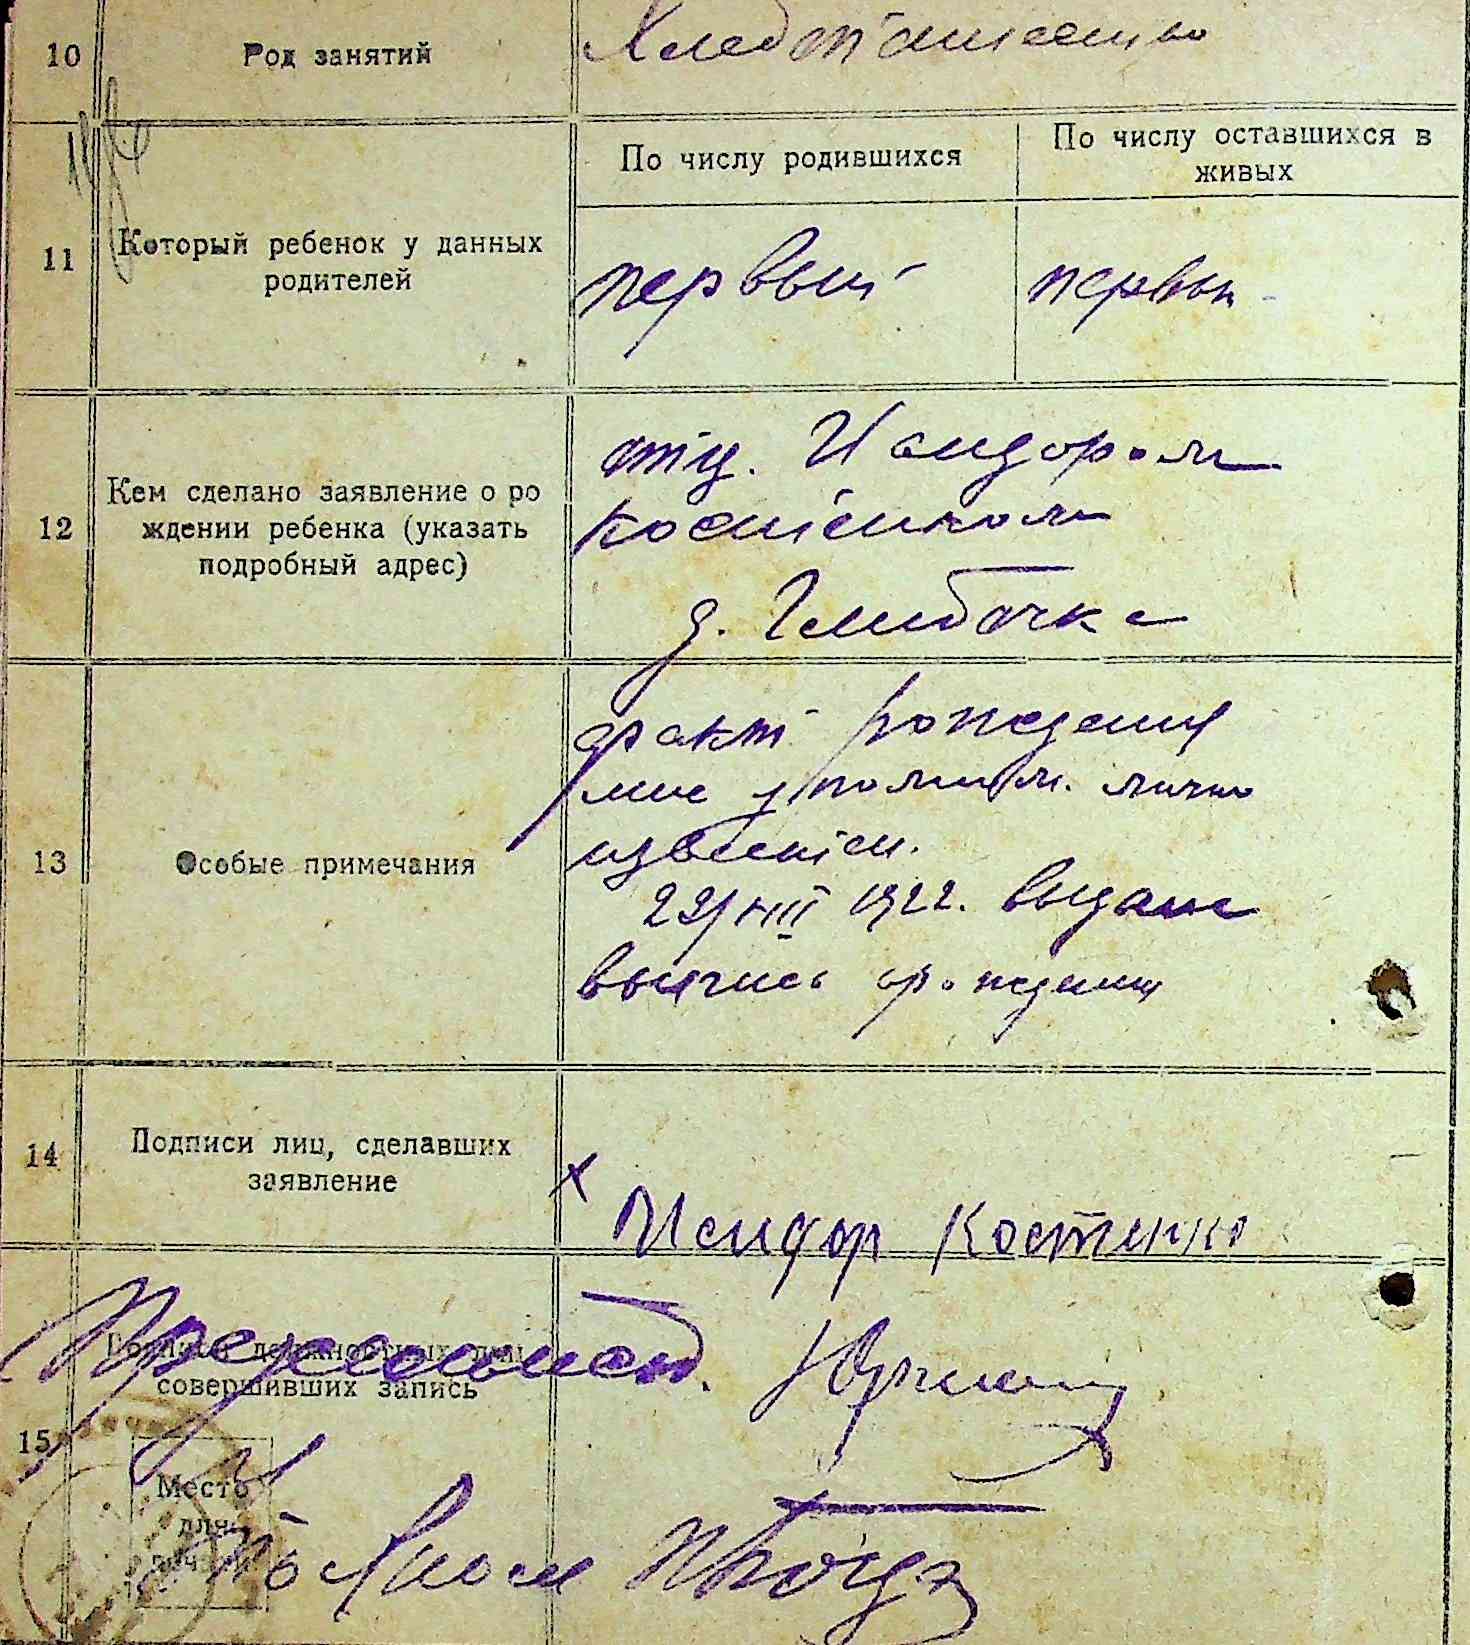 10 Род занятий Хлебопашество
11 Который ребенок у данных
родителей
По числу родившихся
первый
По числу оставшихся в
живых
первый
12 Кем сделано заявление о ро
ждении ребенка (указать
подробный адрес)
отц. Исидором
Костенком
д. Глибочка
13 Особые примечания
факт рождения
мне лично
известен.
1922. выдана
рождении
14 Подписи лиц, сделавших
заявление
х Исидор Костенко
15 Подписи должностных лиц
совершивших запись
Место
для
печати